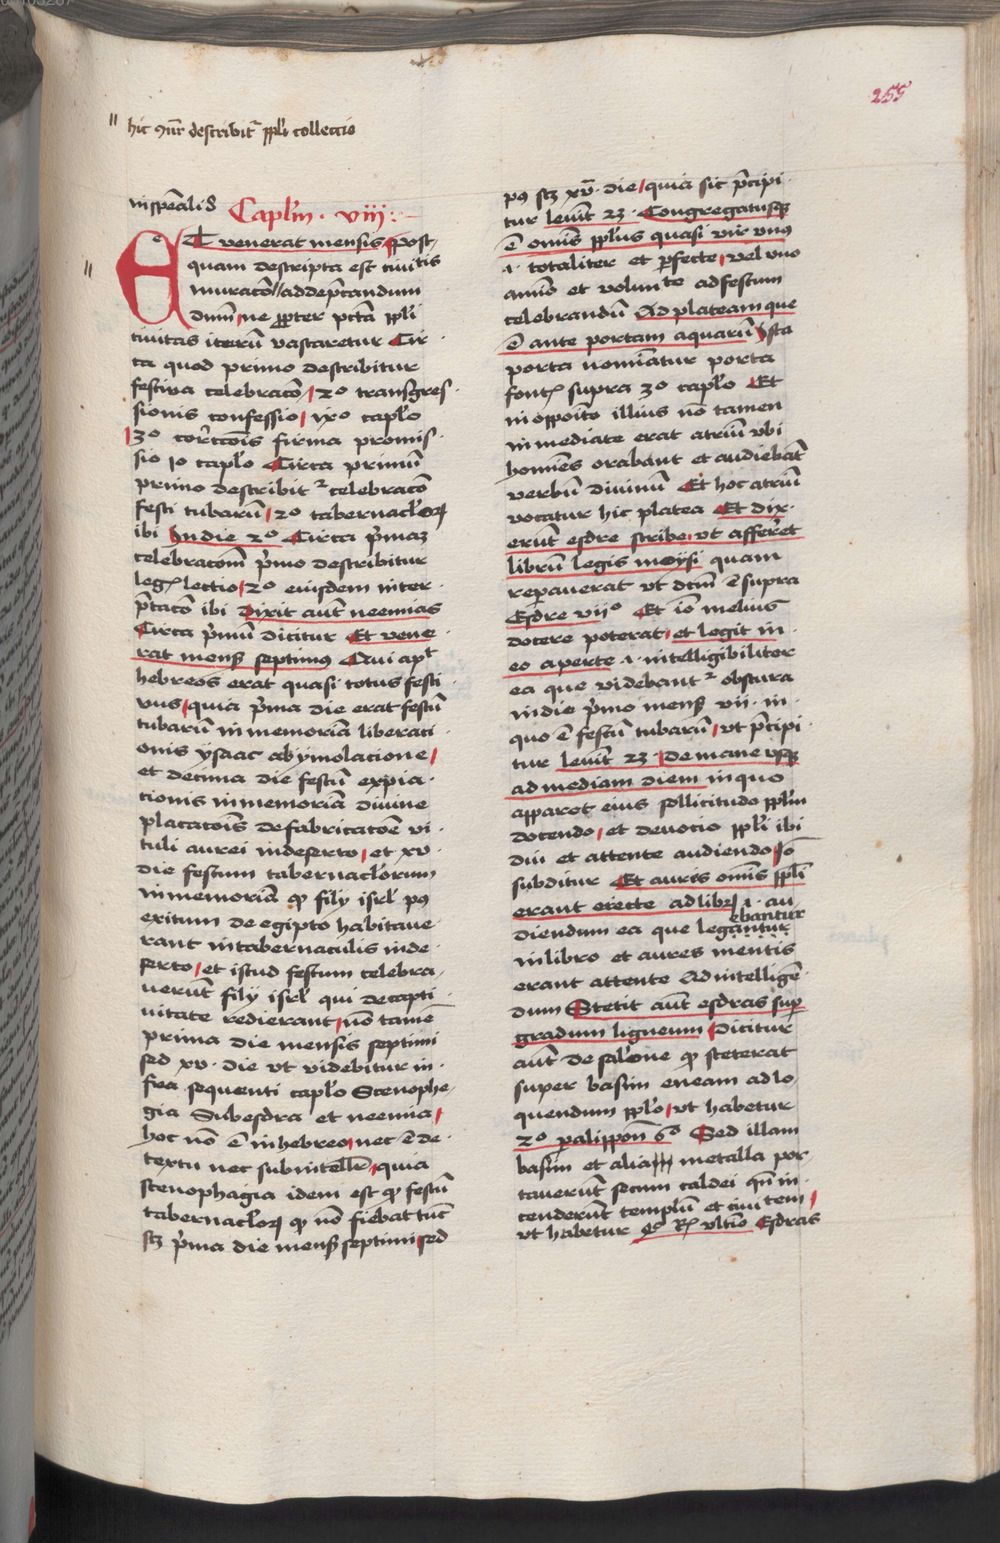 255
hic 9nr̄ describit᷑ ppl̄i collectio
in sp̄eali d̄
Capl̄m · viij :
ET venerat mensis post
quam descripta est ciuitis
muracō // ad dep̄candum
dum̄ ne ꝓpter pctā ppl̄i
ciuitas iterū vastaretur Cir
ca quod primo describitur
festiua celebracō / 2º transgres
sionis confessio / ixº capl̄o
3º corr̄ccōis firma promis
sio 10 capl̄o Circa primū
primo describit᷑ celebracō
festi tubarū / 2º tabernacl̄oꝝ
ibi In die 2º Circa p̄maꝫ
celebracōm p̄mo describitur
legꝭ lectio / 2º eiusdem inter
p̄tacō ibi Dixit aūt neemias
Circa p̄mū dicitur Et vene
rat mensꝭ septimꝰ Qui apᵗ
hebreos erat quasi totus festi
uus / quia p̄ma die erat festū
tubarū in memoriam liberaci
onis ysaac ab ymolacione /
et decima die festū expia
cionis in memoriā diuine
placacōis de fabricatōe vi
tuli aurei in deserto / et xv
die festum tabernacl̄orum
in memoriā qꝫ filij isrl̄ pꝰ
exitum de egipto habitaue
rant in tabernaculis in de
serto / et istud festum celebra
uerūt filij isrl̄ qui de capti
uitate redierant / nō tamē
prima die mensis septimi
sed xv · die vt videbitur in
frea sequenti capl̄o Scenophe
gia Sub esdra et neemia /
hoc nō ē in hebreo / nec ē de
textu nec subintellē / quia
scenophagia idem est qꝫ festū
tabernacl̄oꝝ qꝫ nō fiebat tūc
scꝫ p̄ma die mensꝭ septimi / sed
pꝰ scꝫ xv̄ · die / quia sic p̄cipi
tur leuit̄ 23 · Congregatusqꝫ
ē omīs ppl̄us quasi vir vnꝰ
.i. totaliter et ꝑfecte / vel vno
animo et volunte ad festum
celebrandū Ad plateam que
ē ante portam aquarū Ista
porta nominatur porta
fontꝭ supra 3º capl̄o Et
in oppoīto illius nō tamen
in mediate erat atriū vbi
homīes orabant et audiebāt
verbū diuinū Et hoc atriū
vocatur hic platea Et dix
erūt esdre scribe / vt afferret
librū legis moysi quam
reparauerat vt dcm̄ ē supra
Esdre viiº Et iō melius
docere poterat / et legit in
eo aperte .i. intelligibiliter
ea que videbant᷑ obscura
in die p̄mo mensꝭ vii · in
quo ē festū tubarū / vt p̄cipi
tur leuit̄ 23 / De mane vsqꝫ
ad mediam diem in quo
apparet eius sollicitudo ppl̄m
docendo / et deuotio ppl̄i ibi
diu et attente audiendo / iō
subditur Et auris omīs ppl̄i
erant erecte ad libꝝ .i. au
diendum ea que legantur
ebantur
in libro et aures mentis
erant attente Ad intelligē
dum Stetit aūt esdras suꝑ
gradum ligneum Dicitur
aūt de salōne qꝫ steterat
super basim eneam ad lo
quendum ppl̄o / vt habetur
2º palippōn 6º Sed illam
basim et alia metalla por
tauerūt secum caldei qn̄ in
cenderūt templū et ciuitem /
vt habetur 4º Rꝭ vltīo Esdras